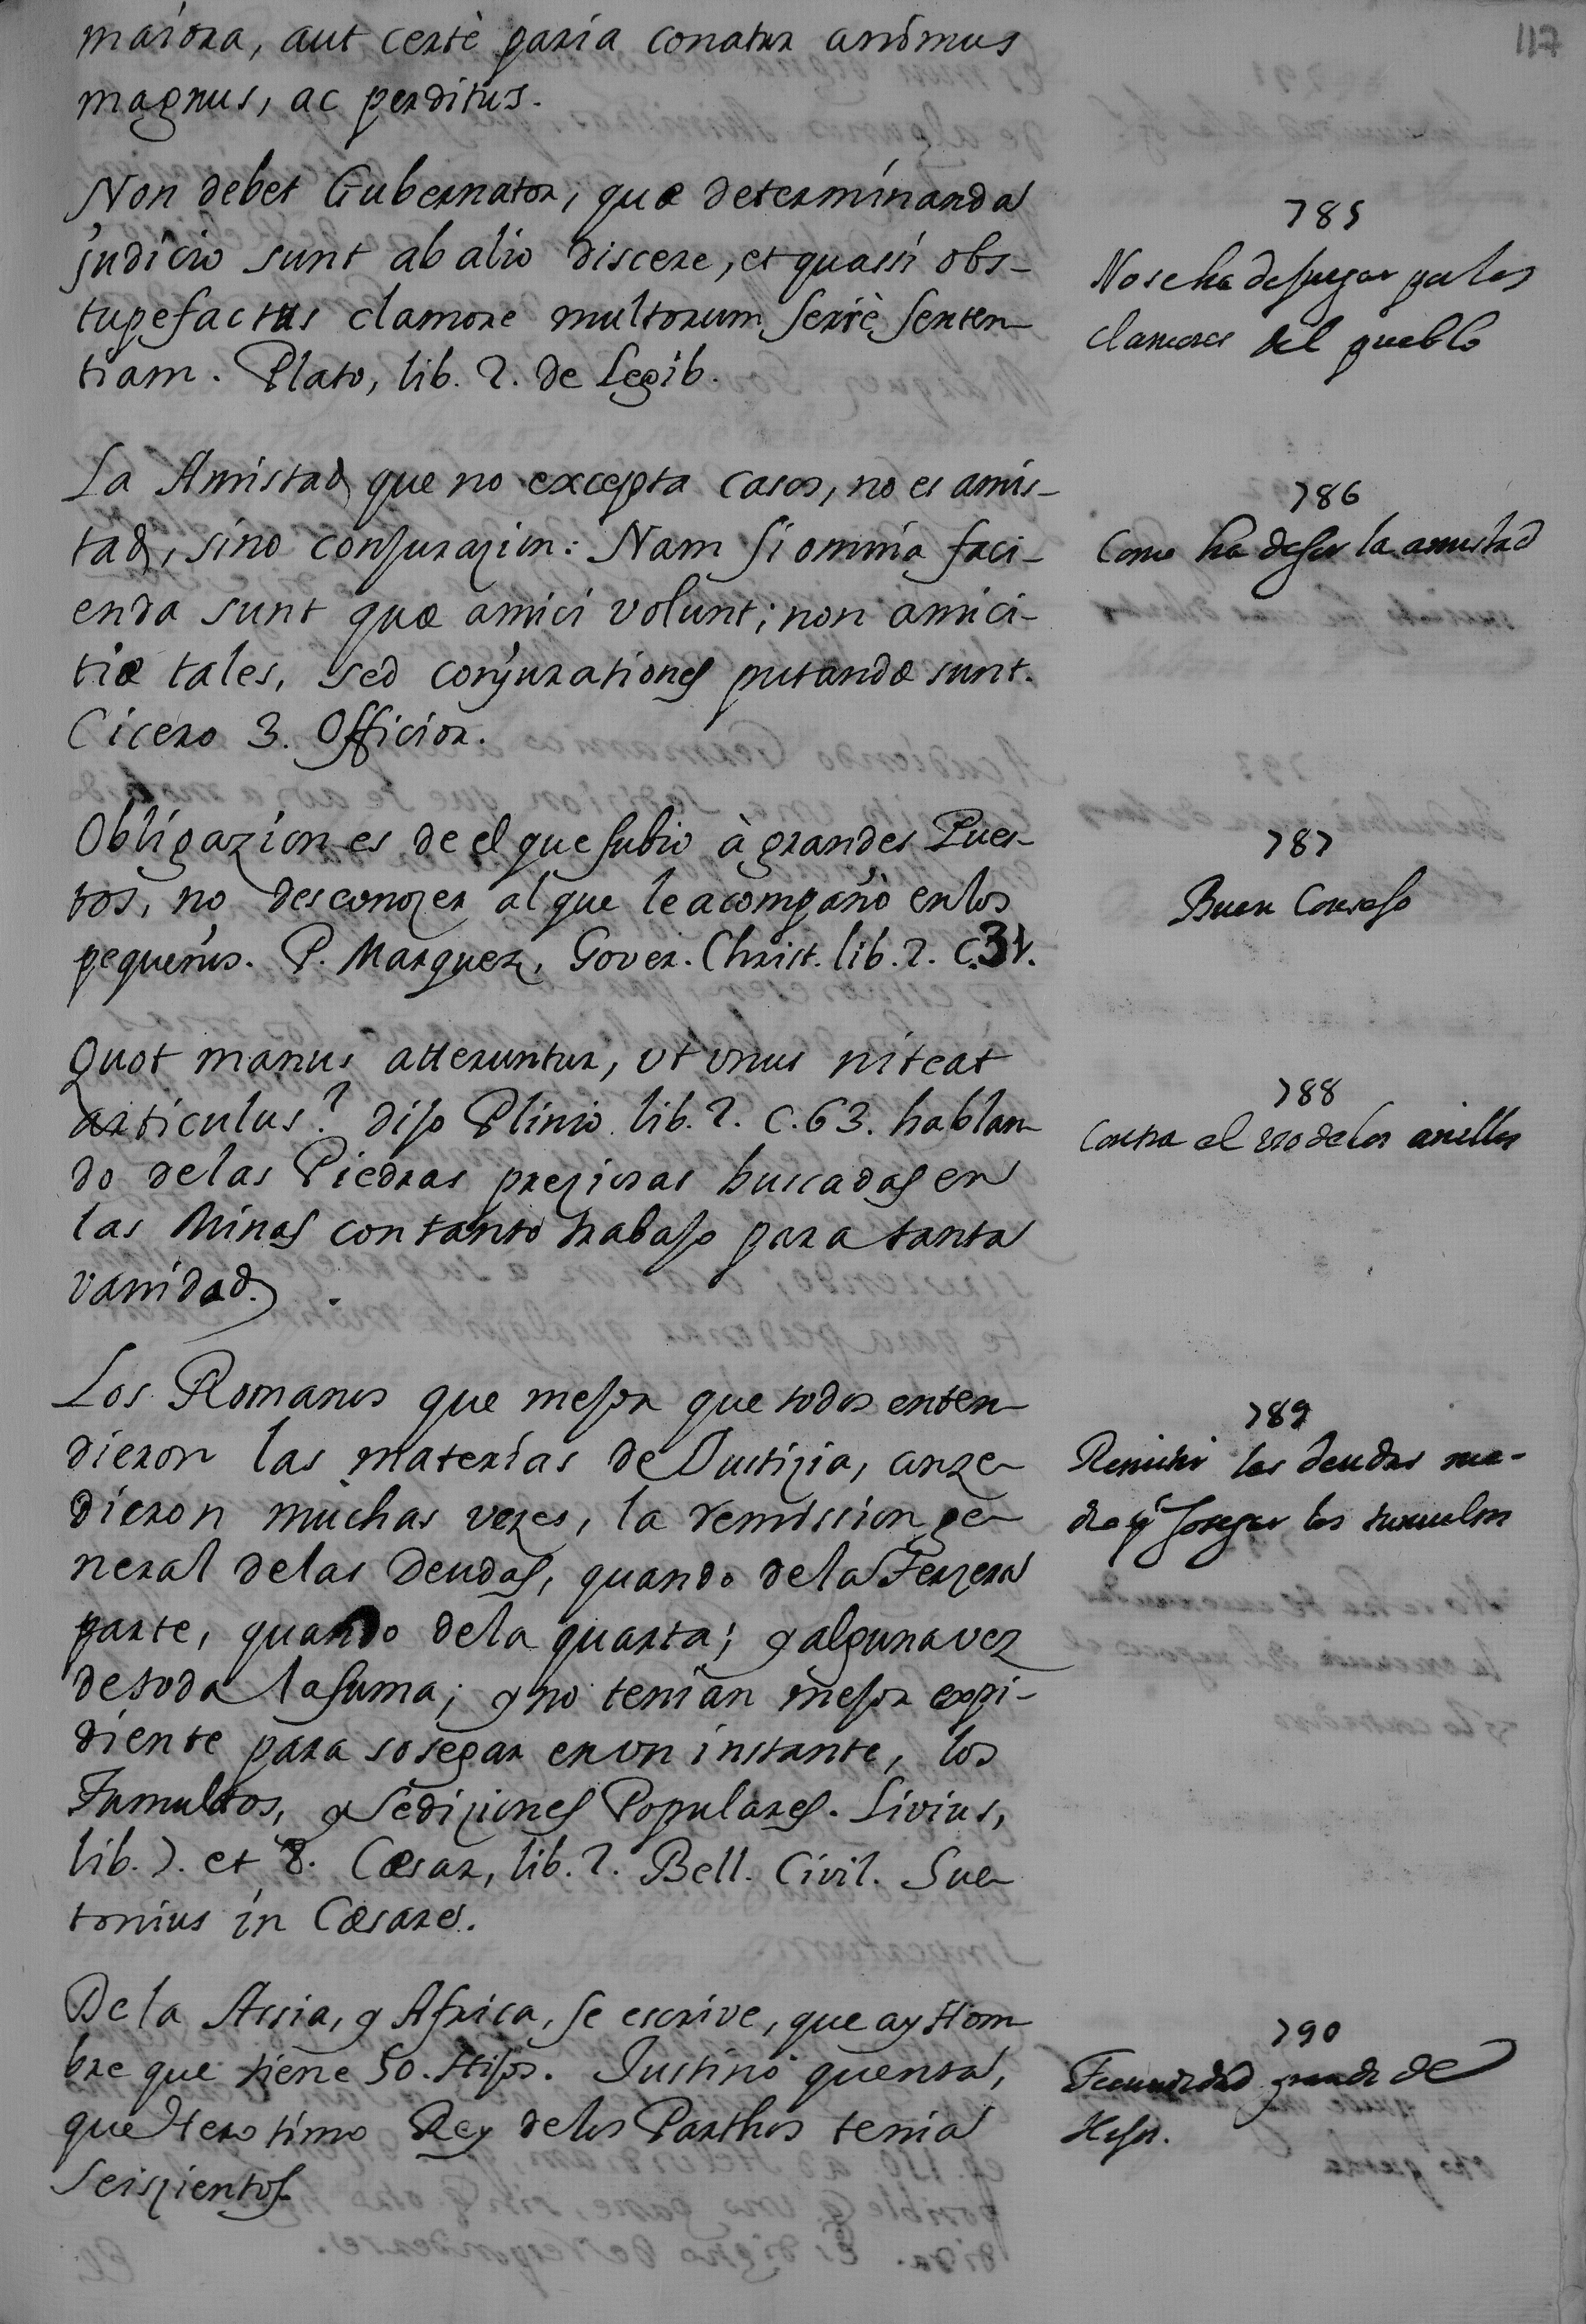 117
maiora, aut certè paria conatur animus
magnus, ac perditus.
785
No se ha de juzgar por los
clamores del pueblo
Non debet Gubernator, quæ determinanda
judicio sunt ab alio discere, et quasi obs-
tupefactus clamore multorum ferrè senten-
tiam. Plato, lib. 2. de Legib.
786
Como ha de ser la amistad
La Amistad que no excepta casos, no es amis-
tad, sino conjurazion: Nam si omnia faci-
enda sunt quæ amici volunt; non amici-
tiæ tales, sed conjurationes putandæ sunt.
Cicero 3. Officior.
787
Buen Consejo
Obligazion es de el que subio à grandes Pues-
tos, no desconozer al que le acompañò en los
pequeños. P. Marquez, Gover. Christ. lib. 2. c. 31.
788
Contra el uso de los anillos
Quot manus atteruntur, ut unus niteat
articulus? dijo Plinio lib. 2. c. 63. hablan-
do de las Piedras preziosas buscadas en
las Minas con tanto trabajo para tanta
vanidad.
789
Remitir las deudas me-
dio pª sosegar los tumultos
Los Romanos que mejor que todos enten-
dieron las materias de Justizia, conze-
dieron muchas vezes, la remission ge-
neral de las Deudas, quando de la Terzera
parte, quando de la quarta; y alguna vez
de toda la suma; y no tenian mejor expi-
diente para sosegar en un instante, los
Tumultos, y Sediziones Populares. Livius,
lib. 7. et 8. Cæsar, lib. 2. Bell. Civil. Sue-
tonius in Cæsare.
790
Fecundidad grande de
Hijos.
De la Assia, y Africa, se escrive, que ay Hom-
bre que tiene 50. Hijos. Justino quenta,
que Herotimo Rey de los Parthos tenia
Seiszientos.